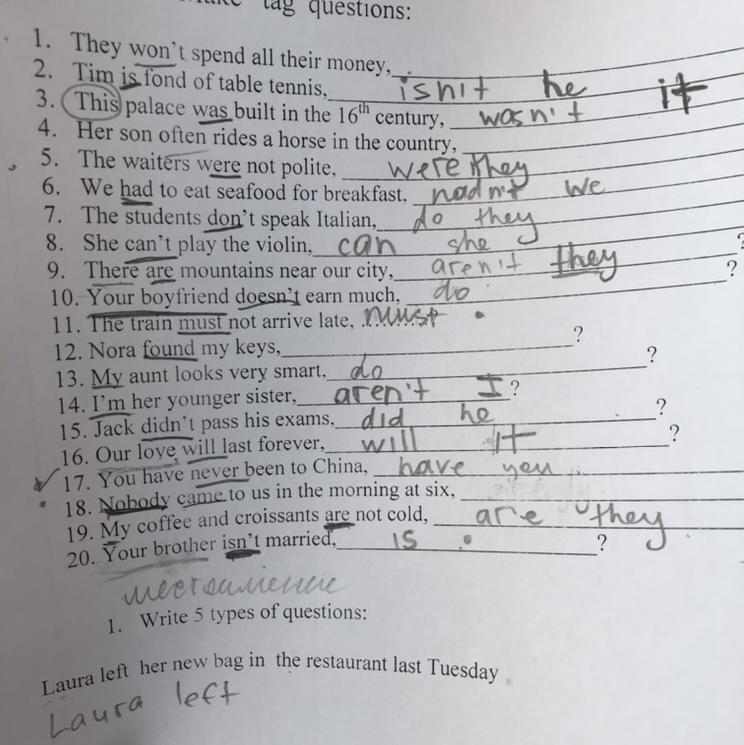 tag questions:
1. They won't spend all their money, ____
2. Tim is fond of table tennis, isn't he
3. This palace was built in the 16th century, wasn't it
4. Her son often rides a horse in the country, ____
5. The waiters were not polite, were they
6. We had to eat seafood for breakfast, hadn't we
7. The students don't speak Italian, do they
8. She can't play the violin, can she
9. There are mountains near our city, aren't they ?
10. Your boyfriend doesn't earn much, do
11. The train must not arrive late, must
12. Nora found my keys, ____ ?
13. My aunt looks very smart, do ?
14. I'm her younger sister, aren't I ?
15. Jack didn't pass his exams, did he ?
16. Our love will last forever, will it ?
17. You have never been to China, have you
18. Nobody came to us in the morning at six, ____
19. My coffee and croissants are not cold, are they
20. Your brother isn't married, is ?
местоимение
1. Write 5 types of questions:
Laura left her new bag in the restaurant last Tuesday
Laura left